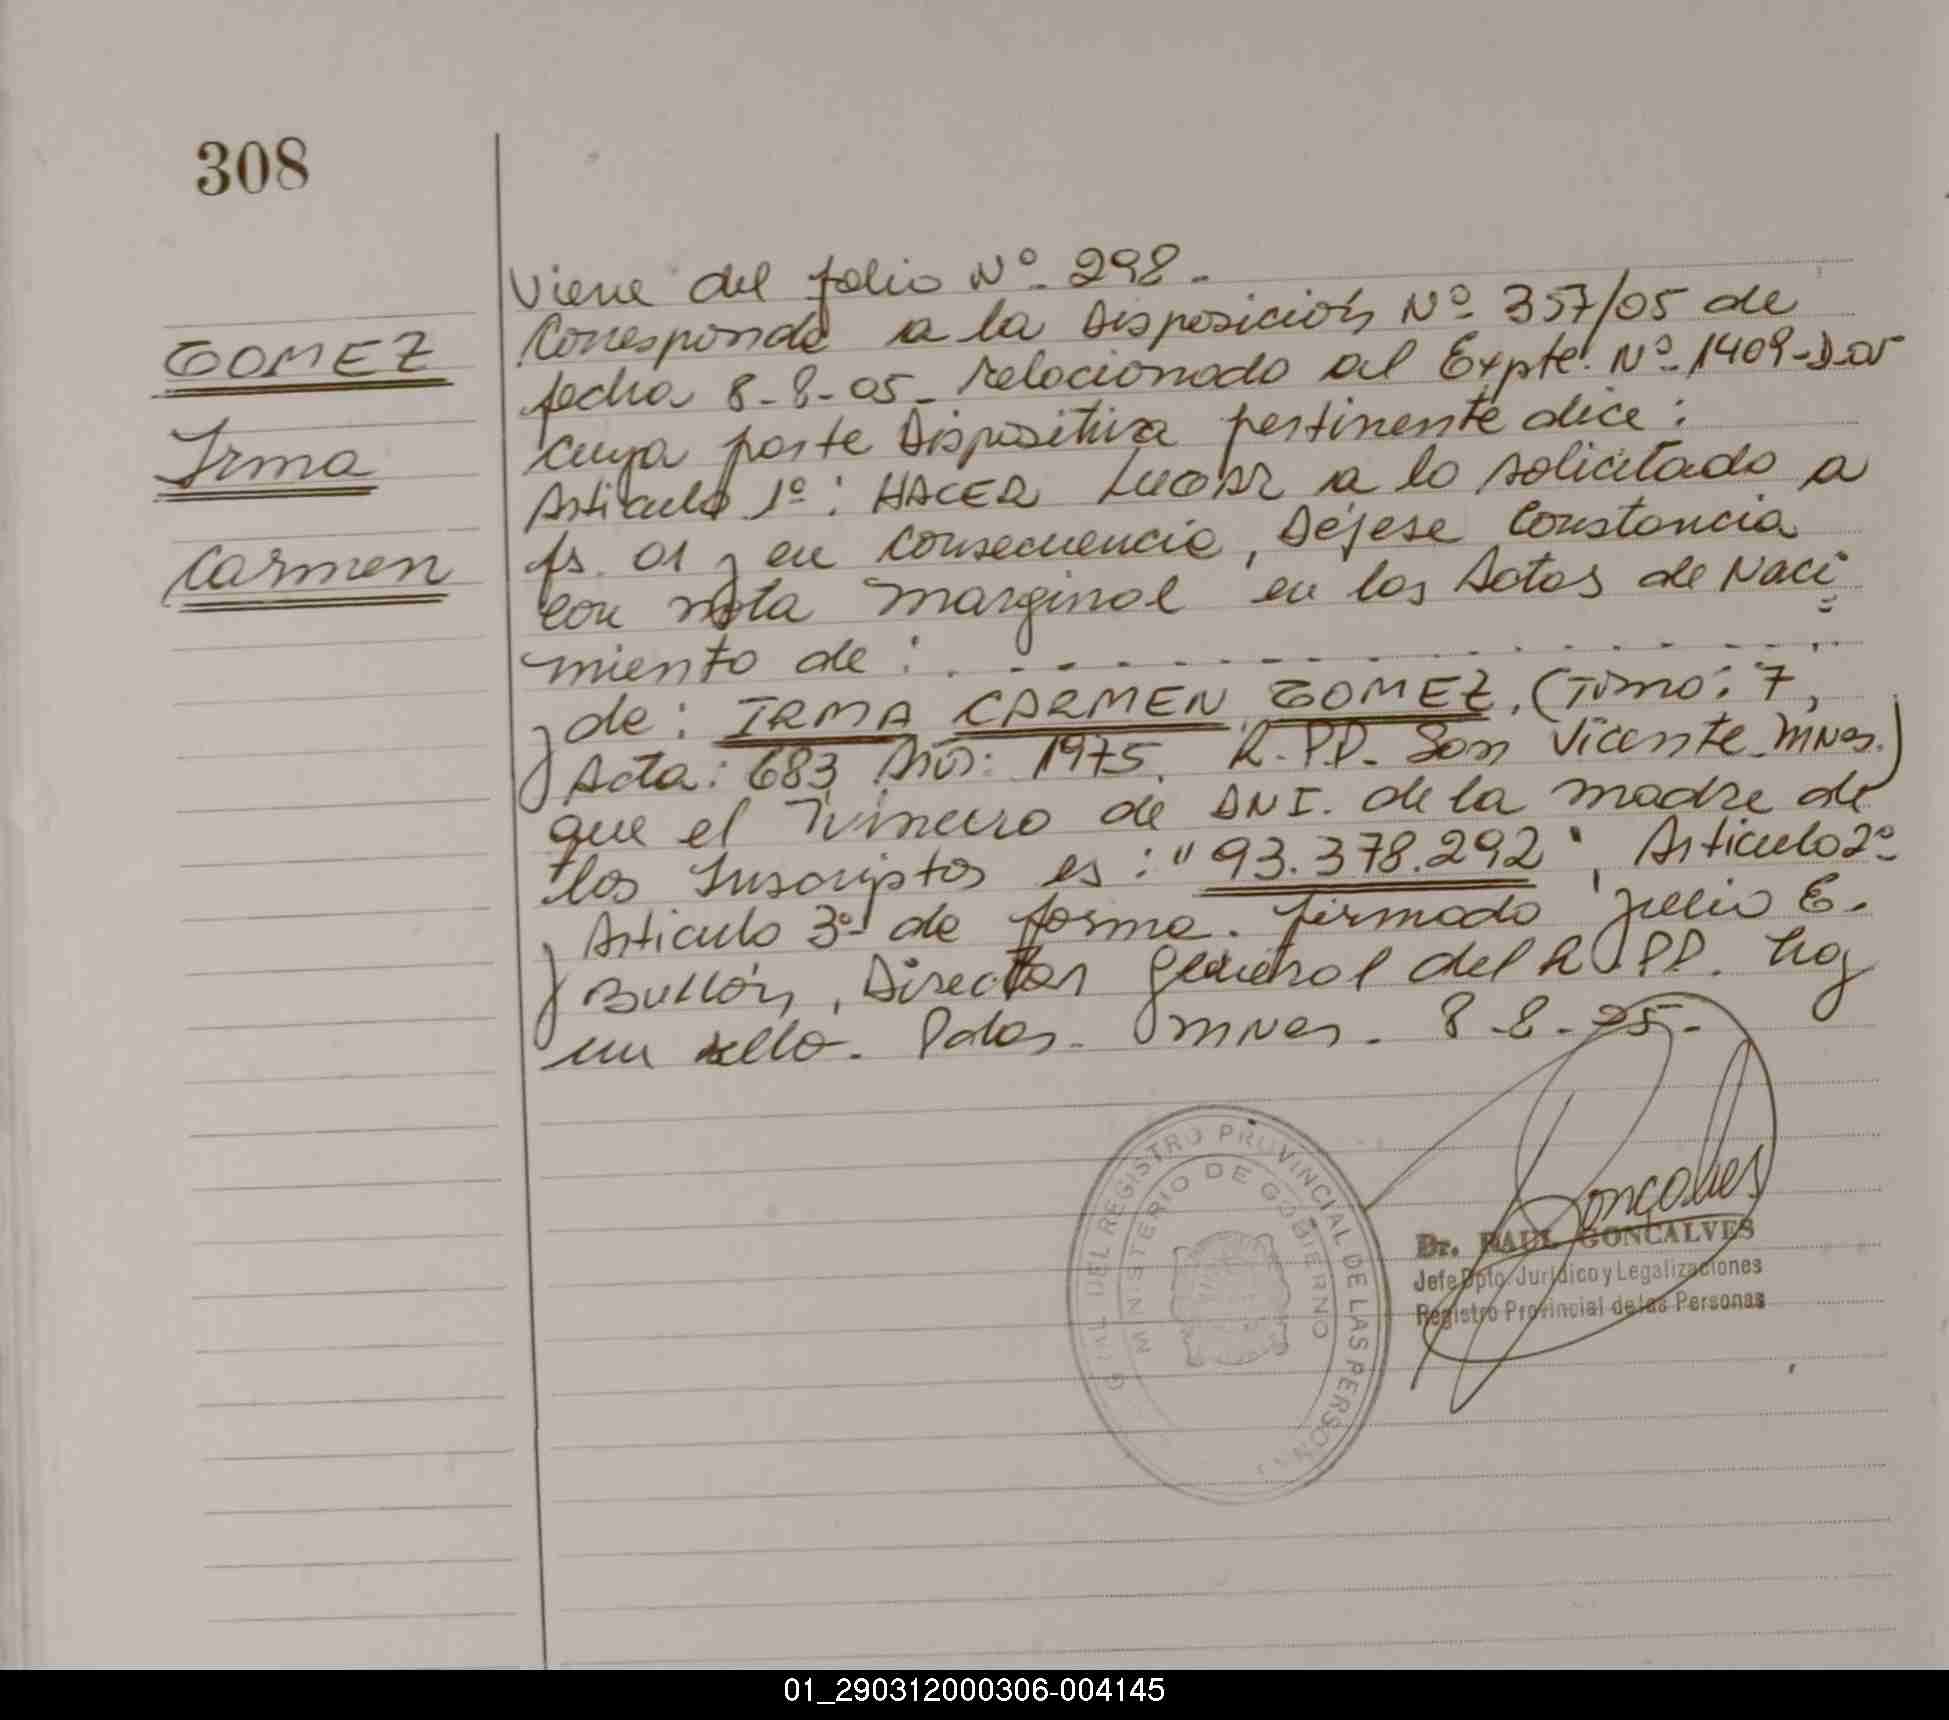 308
GOMEZ
Irma
Carmen
Viene del folio Nº 298.-
Corresponde a la Disposición Nº 357/05 de
fecha 8-8-05- relacionado al Expte. Nº 1409-D-05
cuya parte Dispositiva pertinente dice:
Articulo 1º: HACER LUGAR a lo solicitado a
fs. 01 y en consecuencia, Déjese Constancia
con nota marginal en las Actas de Naci=
miento de: . - - - - - - - - - - - - - - - -
y de: IRMA CARMEN GOMEZ, (Tomo: 7,
Acta: 683 Año: 1975. R.P.P. San Vicente Mnes.)
que el número de DNI. de la madre de
los Inscriptos es: "93.378.292", Articulo 2º
y Articulo 3º de forma. firmado Julio E.
Bullón, Director General del R.P.P. hay
un sello. Pdas. Mnes. 8-8-05-
G RAL DEL REGISTRO PROVINCIAL DE LAS PERSONAS
MINISTERIO DE GOBIERNO
Goncalves
Dr. RAUL GONCALVES
Jefe Dpto. Jurídico y Legalizaciones
Registro Provincial de las Personas
01_290312000306-004145